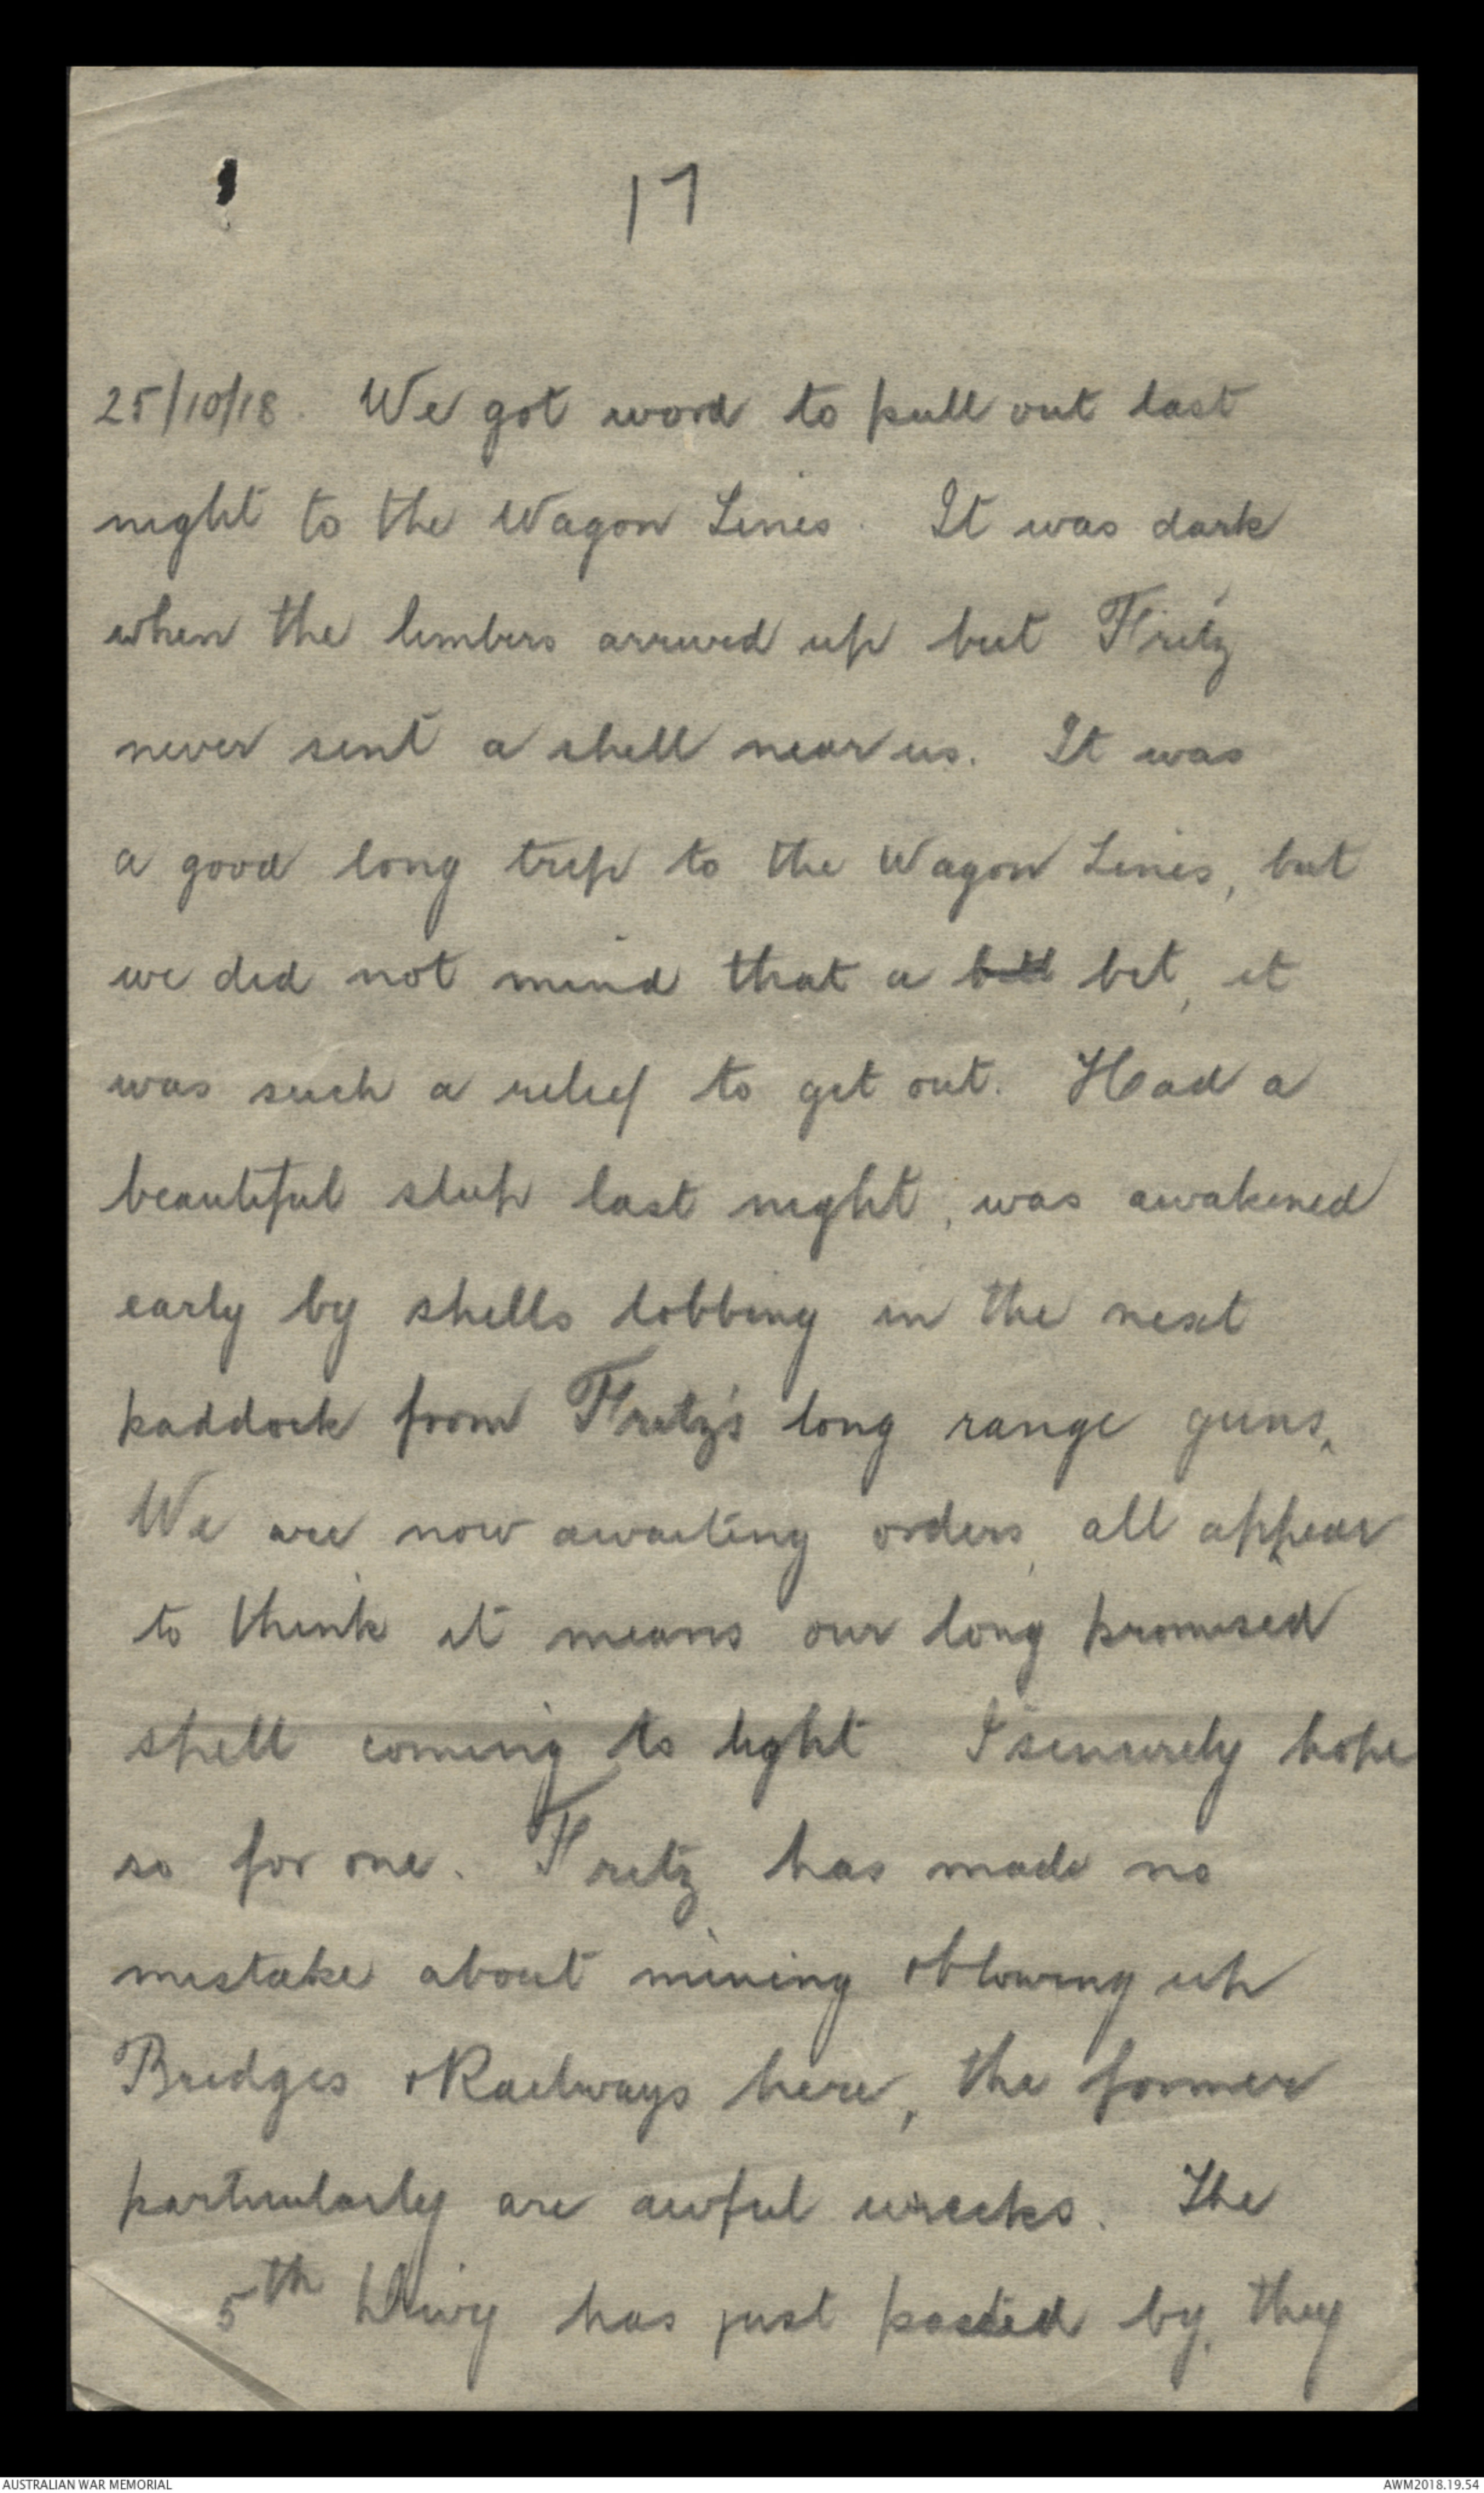 17
25/10/18. We got word to pull out last
night to the Wagon Lines. It was dark
when the limbers arrived up but Fritz
never sent a shell near us. It was
a good long trip to the Wagon Lines, but
we did not mind that a bit, it
was such a relief to get out. Had a
beautiful sleep last night, was awakened
early by shells lobbing in the next
paddock from Fritz's long range guns.
We are now awaiting orders, all appear
to think it means our long promised
spell coming to light. I sincerely hope
so for one. Fritz has made no
mistake about mining & blowing up
Bridges & Railways here, the former
particularly are awful wrecks. The
5th Divvy has just passed by, they
AUSTRALIAN WAR MEMORIAL
AWM2018.19.54